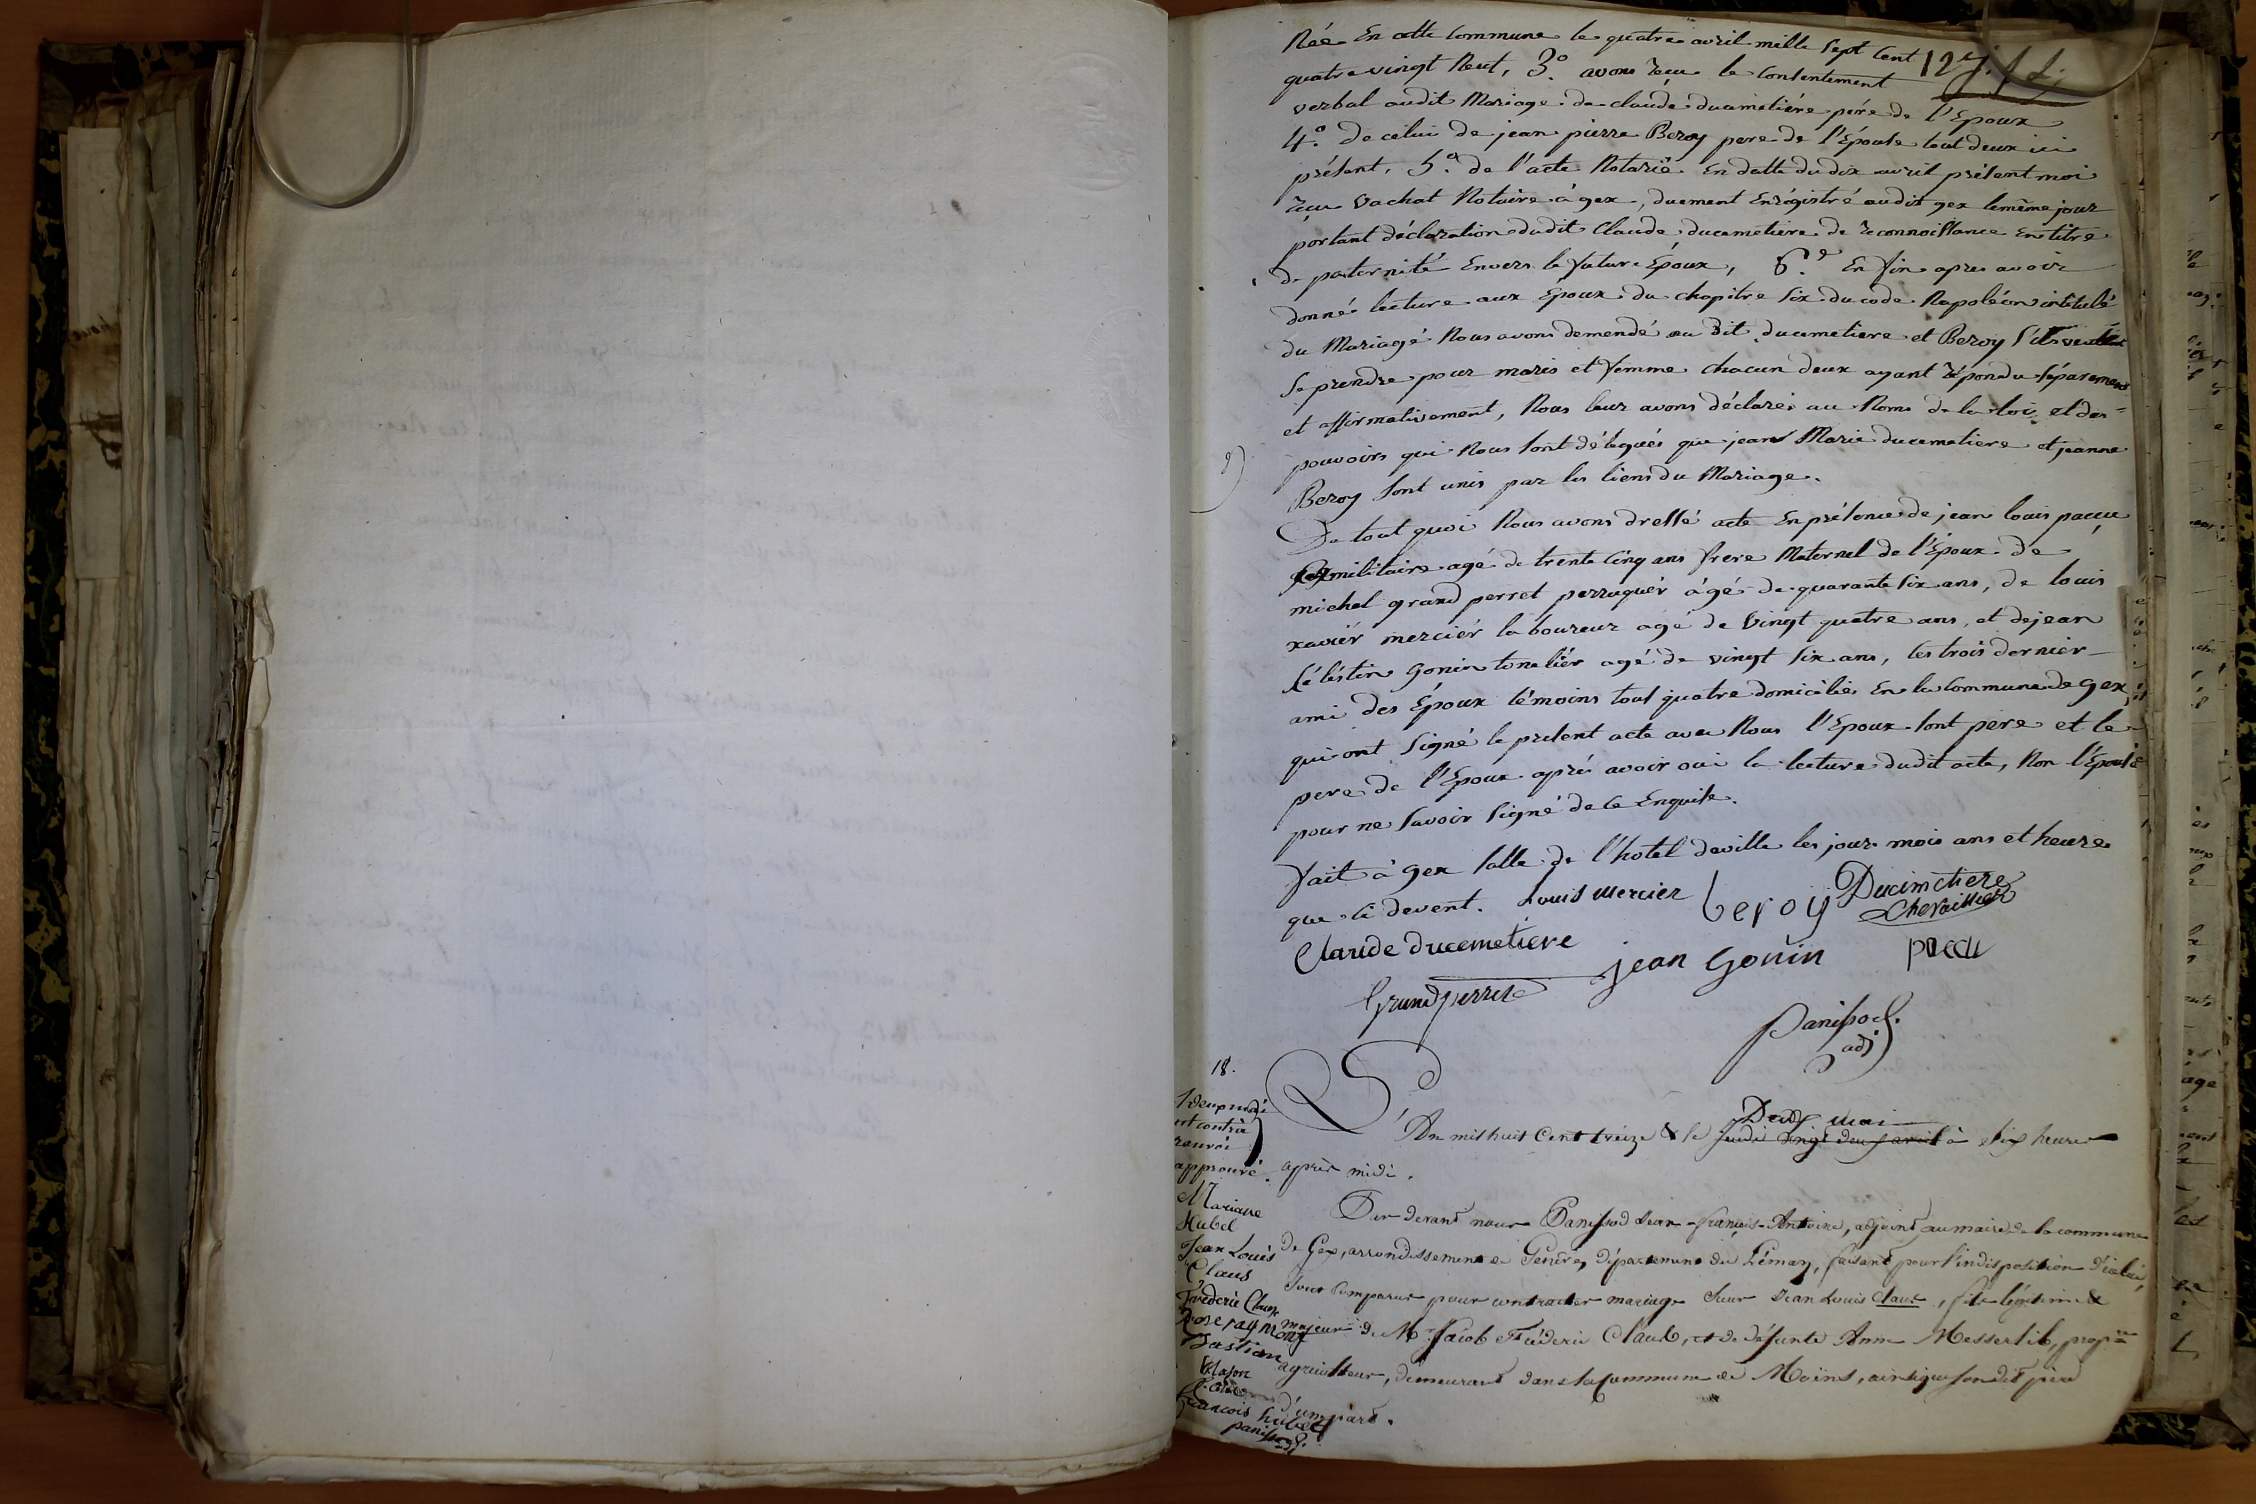 Née En cette Commune le quatre avril mille Sept Cent
quatre vingt Neuf, 3.° avons reçu le Consentement
verbal audit Mariage de claude ducimetiére pére de l'Epoux
4.° De celui de jean pierre Beroy pere de l'Épouse tout deux ici
présent, 5.° de l'acte Notarié En datte du dix avril présent moi
reçu Vachat Notaire à gex, duement Enrégistré audit gex lemême jour
portant déclaration dudit Claude ducemetiere de reconnoissance En titre
de paternité Envers le futur Époux, 6.° En fin apres avoir
donné lecture aux Époux du chapitre Six du code Napoléon intitulé
du Mariage Nous avons demendé au dit ducemetiere et Beroy S'ils veulles
Se prendre pour maris et femme chacun deux ayant répondu Séparement
et affirmativement, Nous leur avons déclaré au Nom de la loi et des
pouvoirs qui Nous Sont délegués que jean Marie ducemetiere et jeanne
Beroy Sont unis par les liens du Mariage.
De tout quoi Nous avons dressé acte En présence de jean louis paccu
militaire agé de trente Cinq ans frere Maternel de l'Époux de
michel grand perret perruquér ágé de quarante Six ans, de louis
xaviér merciér laboureur agé de vingt quatre ans, et de jean
Céléstin Gonin toneliér agé de vingt Six ans, les trois dernier
ami des Époux témoins tout quatre domiciliés En la Commune de gex,
qui ont Signé le présent acte avec Nous l'Epoux Sont pere et le
pere de l'Epoux aprés avoir oui la lecture dudit acte, Non l'Épouse
pour ne Savoir Signé de ce Enquise.
fait à gex Salle de l'hotel deville les jour mois ans et heure
que ci devent. Louis mercier beroy Ducimetiere
Chevaillier
Claude ducemetiere jean Gonin paccu
Grandperret
Panissod.
adj
18.
Deux mai
An mil huit Cent treize & le jeudi vingt deux avril à dix heures
après midi.
approuvé.
Par devant nous Panissod Jean-françois-Antoine, adjoint au maire de la commune
de Gex, arrondissement de Genève, département du Léman, faisant pour l'indisposition d'icelui,
Sont Comparus pour contracter mariage Sieur Jean Louis Claus, fils légitime &
majeur de M. Jacob Fréderic Claus, et de défunte Anne Messerlib, prop.re
agriculteur, demeurant dans la Commune de Moëns, ainsi que son dit père
d'une part.
Mariage
Hubel
Jean Louis
Claus
fréderic Claus
Rose raymont
Bastian
françois hubel
panissod